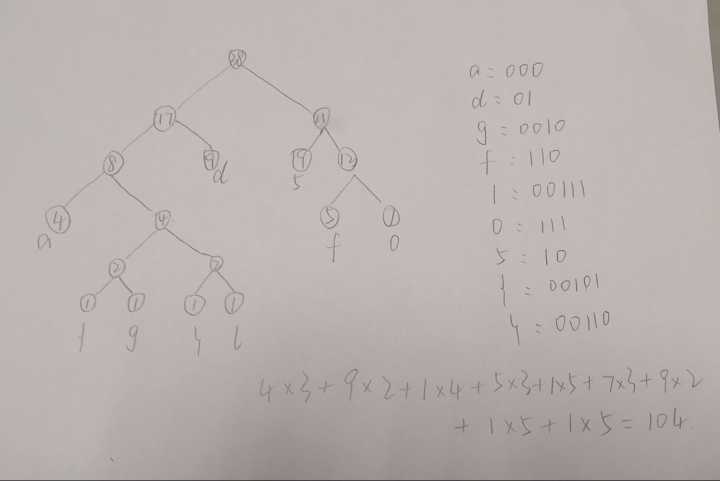 38
17 11
8 9 19 12
d 5
4 4 5 7
a f 0
2 2
1 1 1 1
g l
a = 000
d = 01
g = 0010
f = 110
l = 00111
0 = 111
5 = 10
= 00101
= 00110
4×3+9×2+1×4+5×3+1×5+7×3+9×2
+ 1×5+1×5=104